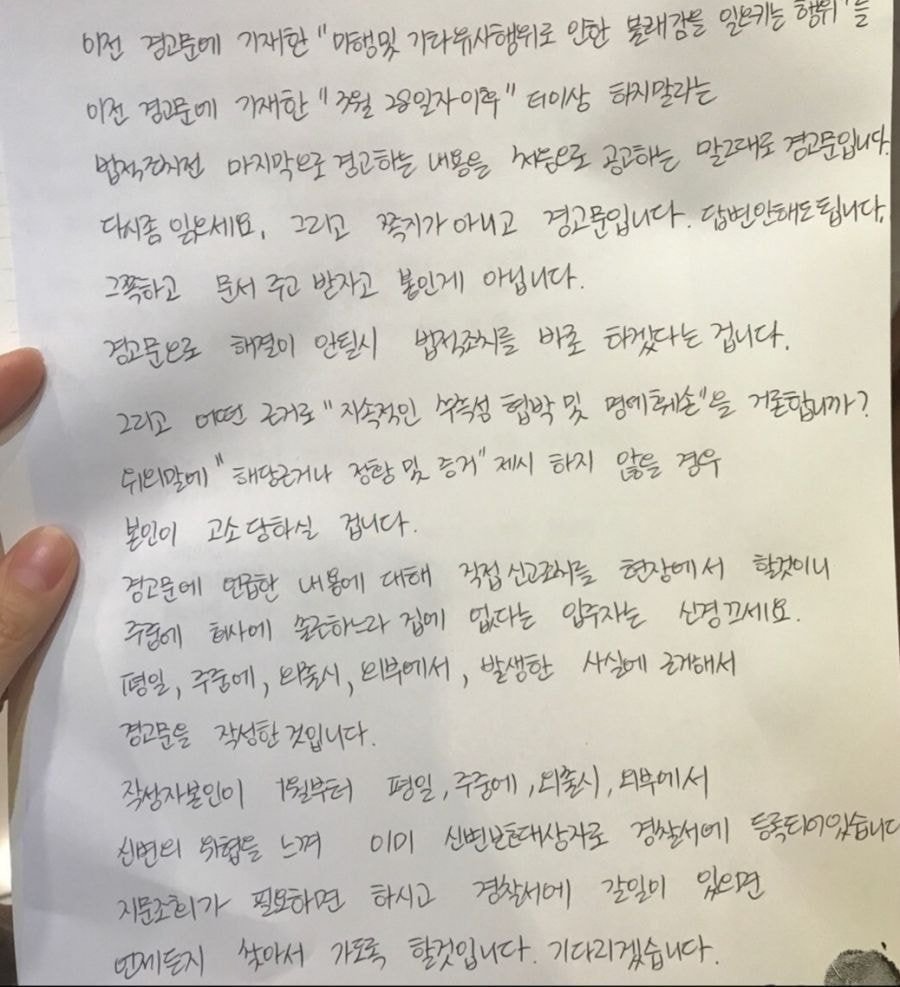 이전 경고문에 기재한 "미행및 기타유사행위로 인한 불래감을 일으키는 행위"를
이전 경고문에 기재한 "3월 28일자이후" 더이상 하지말라는
법적조치전 마지막으로 경고하는 내용을 처음으로 공고하는 말그대로 경고문입니다.
다시좀 읽으세요, 그리고 쪽지가아니고 경고문입니다. 답변안해도됩니다.
그쪽하고 문서 주고 받자고 붙인게 아닙니다.
경고문으로 해결이 안될시 법적조치를 바로 하겠다는 겁니다.
그리고 어떤 근거로 "지속적인 수늑성 협박 및 명예훼손"을 거론합니까?
뒤의말에 "해당근거나 정황 및 증거" 제시 하지 않을 경우
본인이 고소당하실 겁니다.
경고문에 언급한 내용에 대해 직접신고조치를 현장에서 할것이니
주중에 회사에 출근하느라 집에 없다는 입주자는 신경끄세요.
평일, 주중에, 외출시, 외부에서, 발생한 사실에 근거해서
경고문을 작성한것입니다.
작성자본인이 1월부터 평일, 주중에, 외출시, 외부에서
신변의 위협을 느껴 이미 신변보호대상자로 경찰서에 등록되어있습니다
지문조회가 필요하면 하시고 경찰서에 갈일이 있으면
언제든지 찾아서 가도록 할것입니다. 기다리겠습니다.